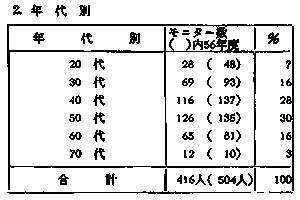 2. 年代別
年代別 モニター数 ( )内56年度 %
20代 28 ( 48) 7
30代 69 ( 93) 16
40代 116 (137) 28
50代 126 (135) 30
60代 65 ( 81) 16
70代 12 ( 10) 3
合計 416人 (504人) 100